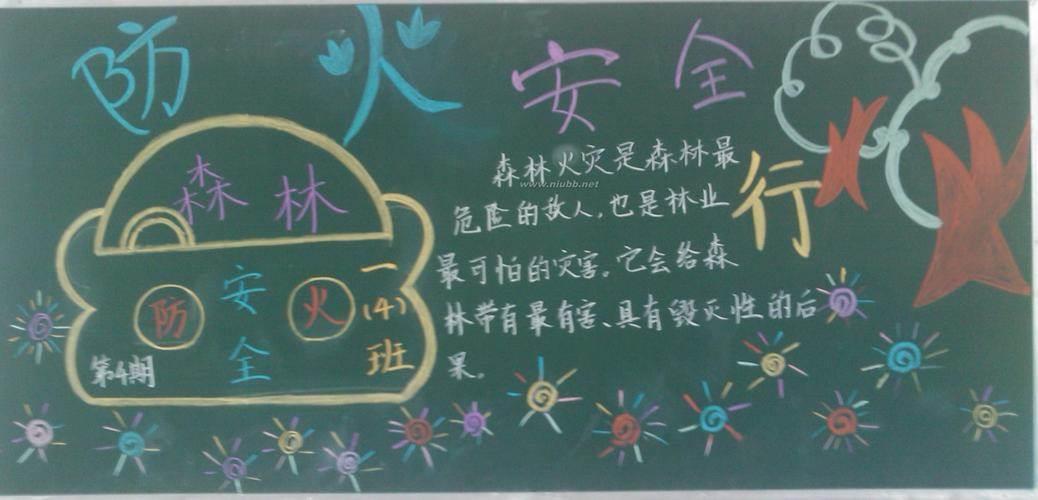 防火安全
行
森林
防 安全 火
一(4)班
第4期
森林火灾是森林最
www.niubb.net
危险的敌人,也是林业
最可怕的灾害。它会给森
林带有最有害、具有毁灭性的后
果。